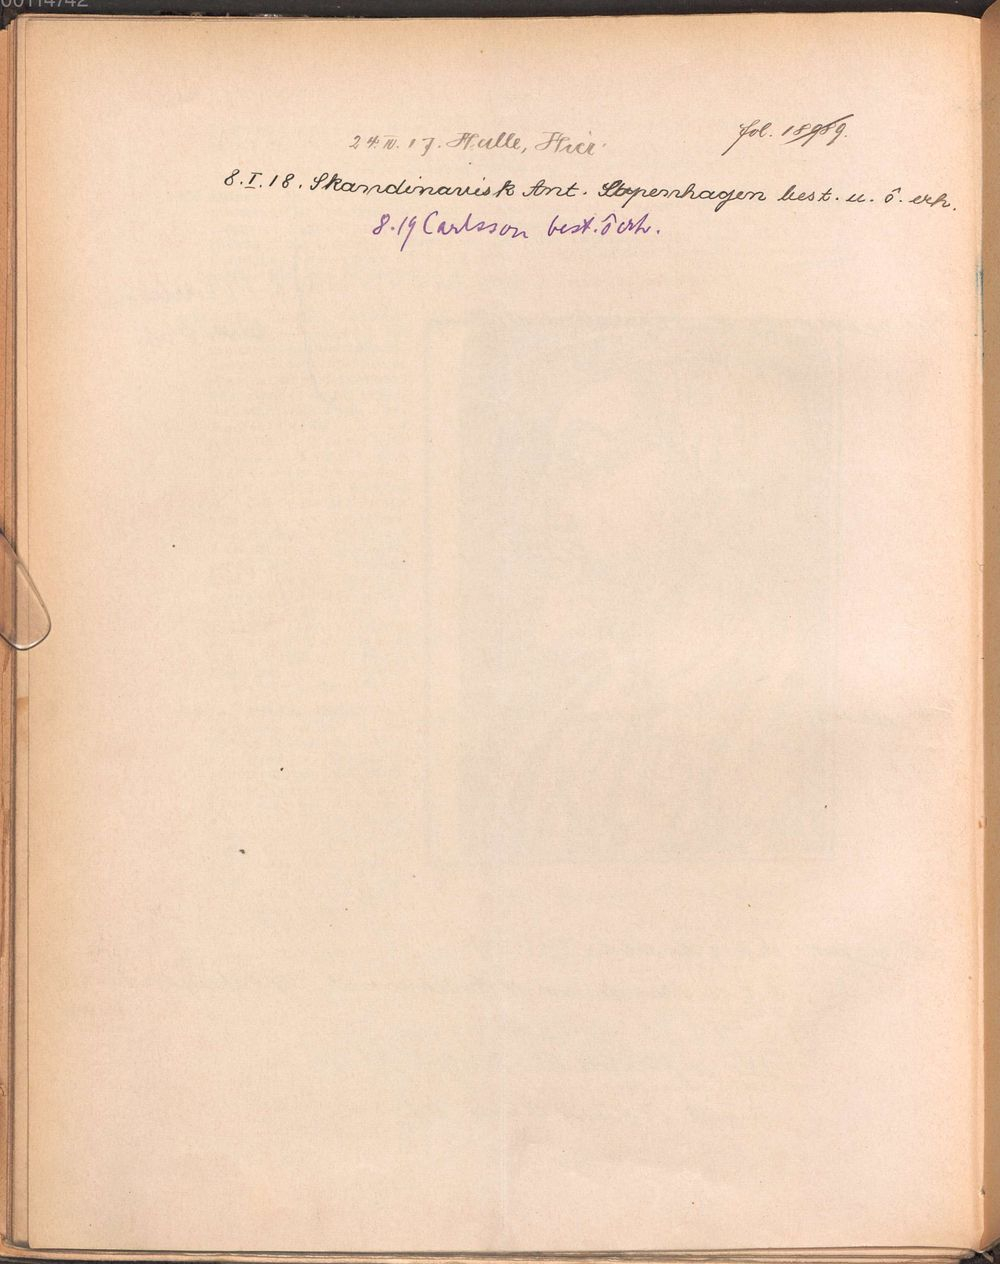 00114742
24.IV.17. Halle, Hier.
fol. 18989.
8.I.18. Skandinavisk Ant. Kopenhagen best. u. ö. erh.
8.19 Carlsson best. ö erh.